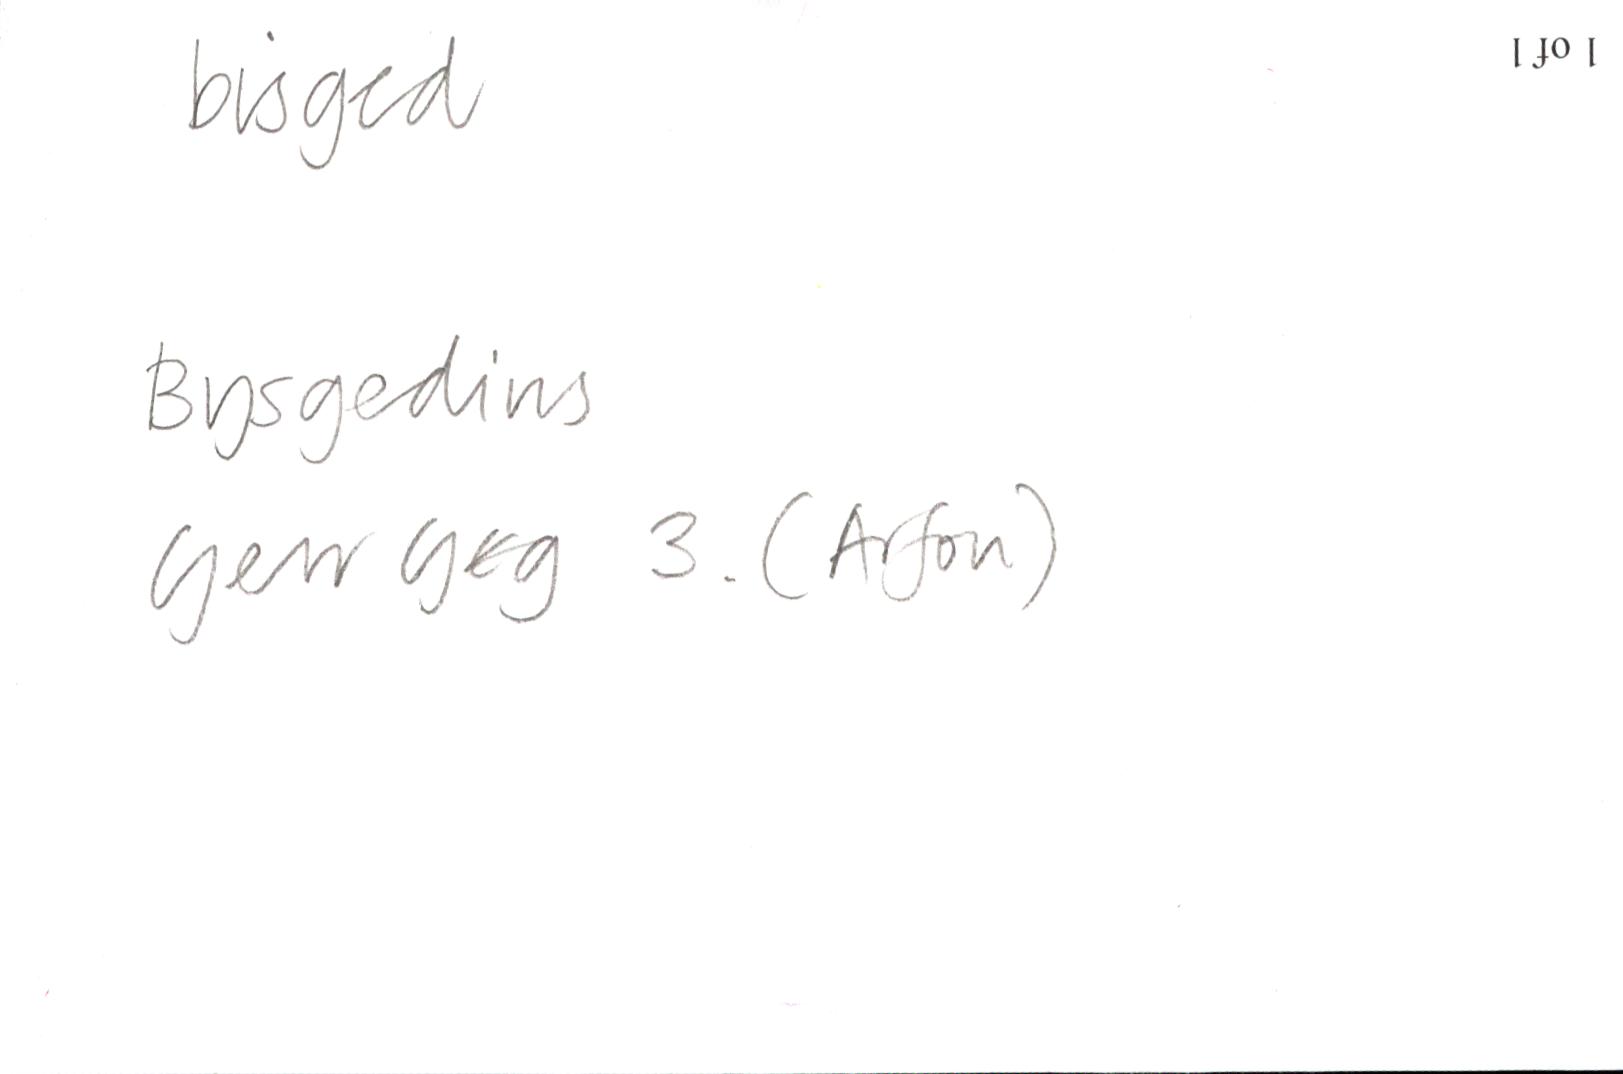 bisged
1 of 1
Bysgedins
Geirr Geg 3. (Arfon)